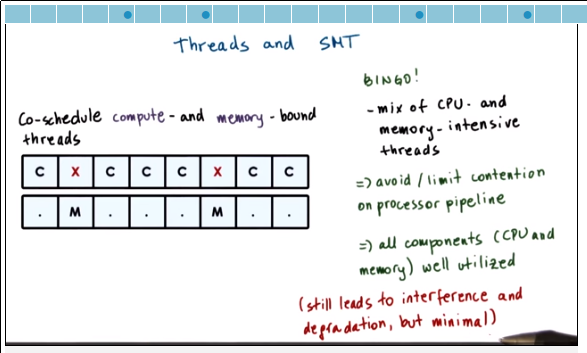 Threads and SMT
Co-schedule compute- and memory-bound
threads
C X C C C X C C
. M . . . M . .
BINGO!
- mix of CPU- and
memory-intensive
threads
=> avoid/limit contention
on processor pipeline
=> all components (CPU and
memory) well utilized
(still leads to interference and
degradation, but minimal)